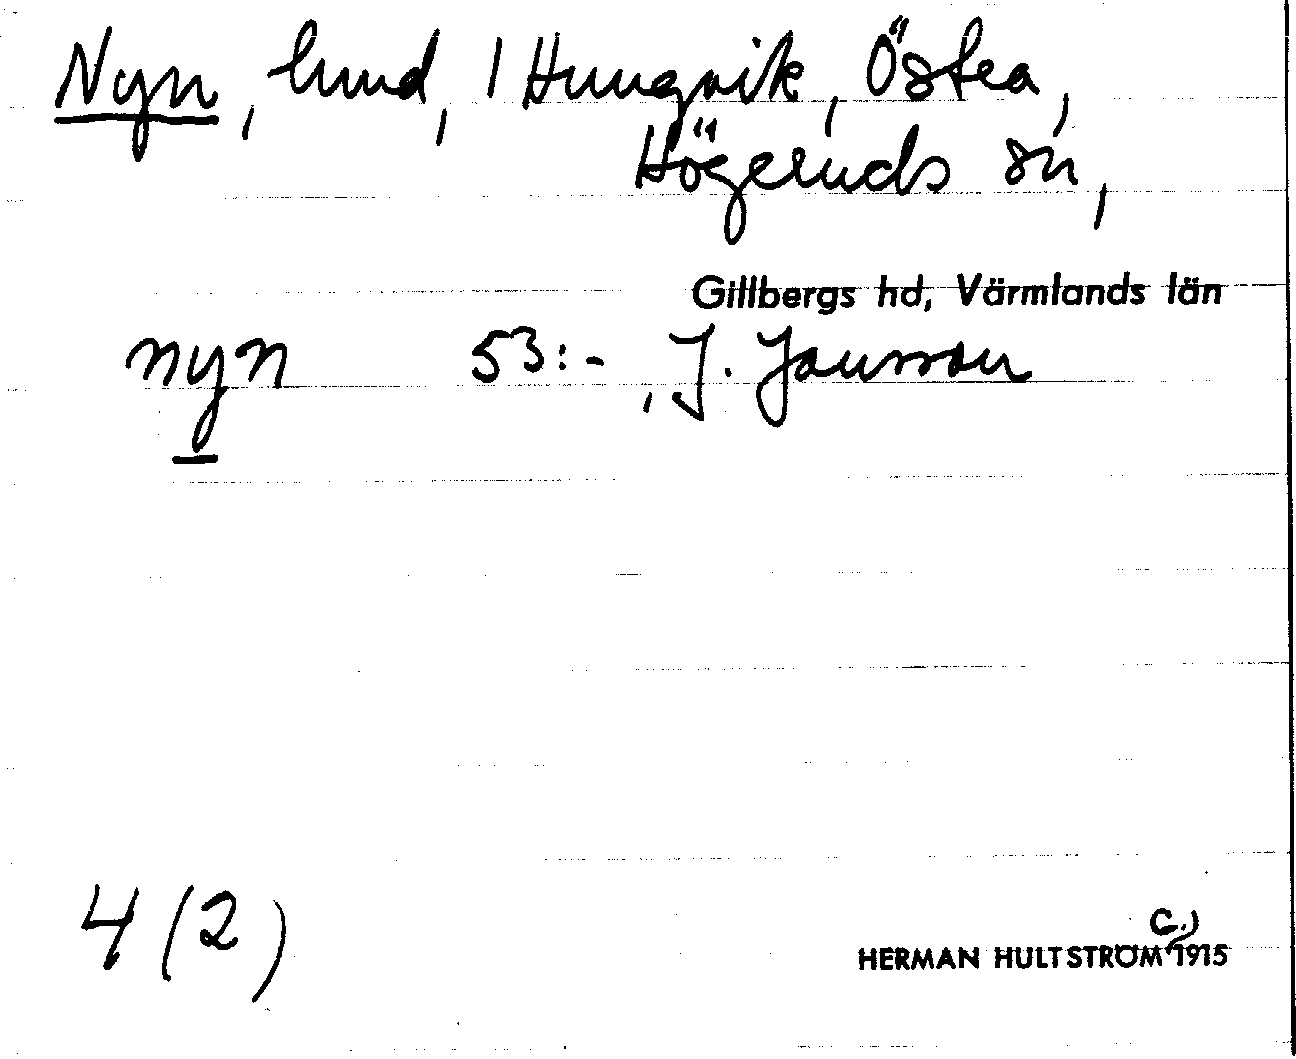 Nyn, hmd, 1 Hungvik, Östra,
Högeruds sn,
Gillbergs hd, Värmlands län
nyn 53:-, J. Jansson
4 (2)
C.)
HERMAN HULTSTRÖM 1915